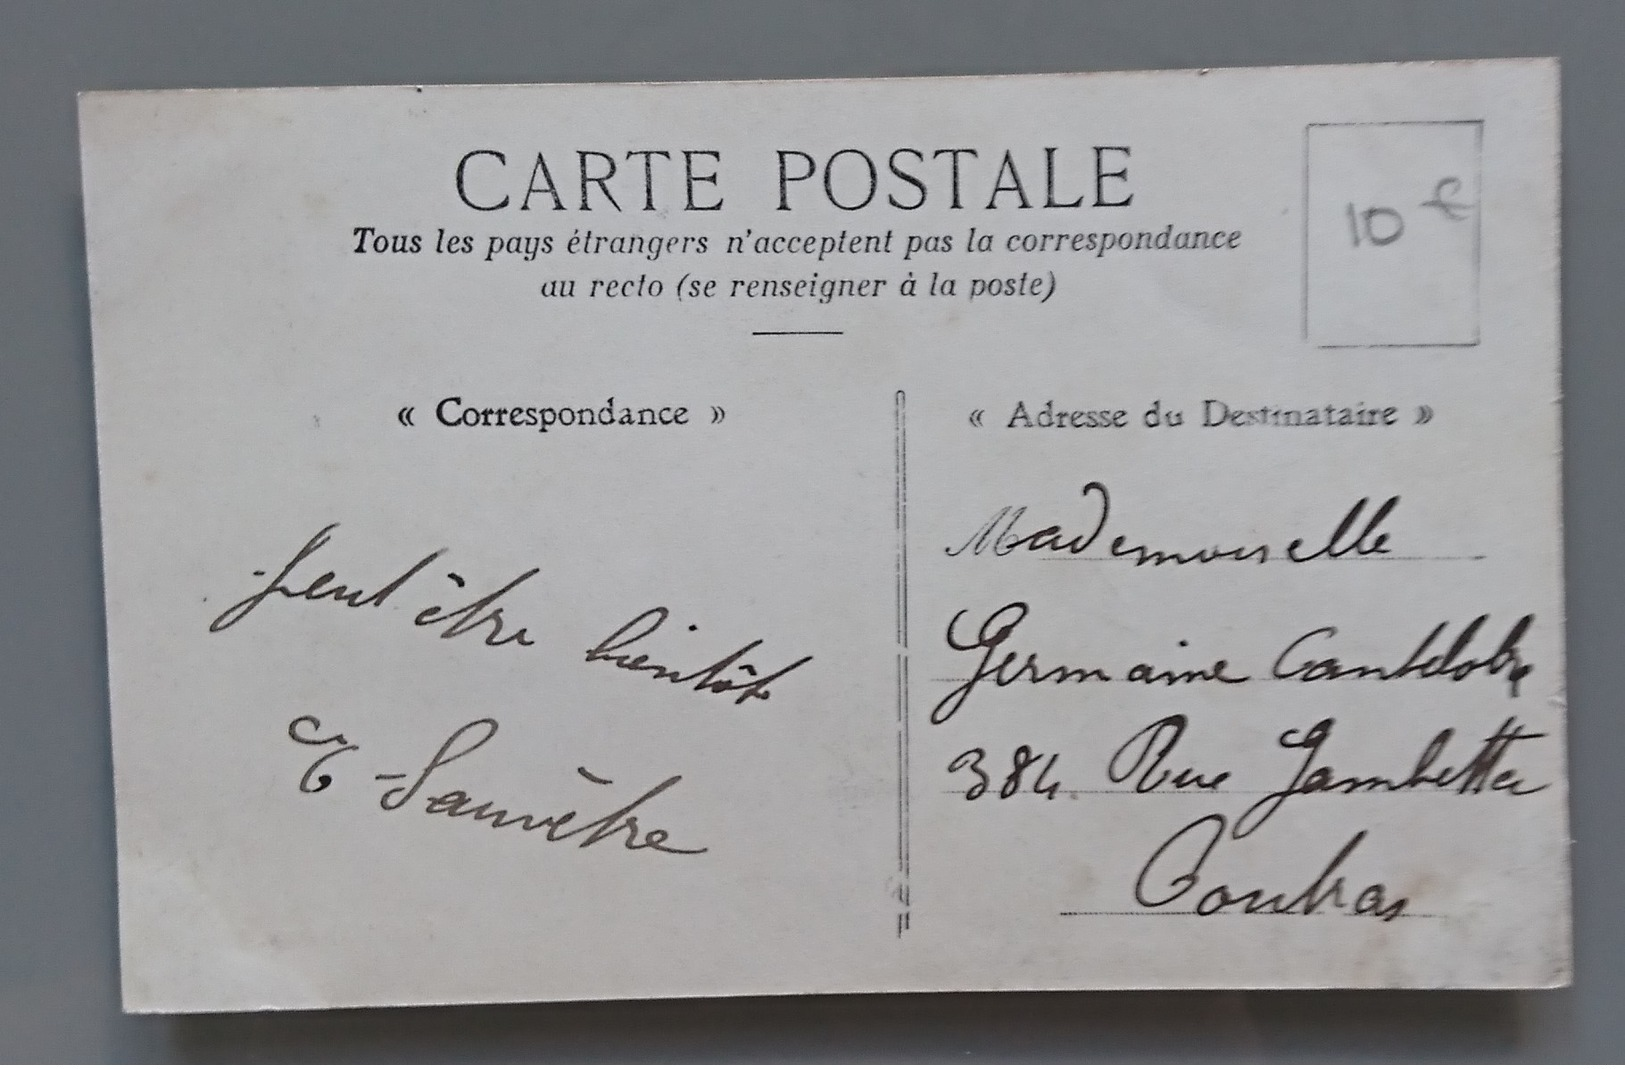 CARTE POSTALE
Tous les pays étrangers n'acceptent pas la correspondance
au recto (se renseigner à la poste)
10 f
« Correspondance »
peut être bientôt
E Sauvêtre
« Adresse du Destinataire »
Mademoiselle
Germaine
384 Rue Gambetta
Coutras